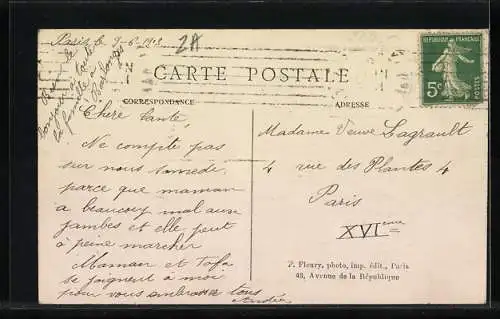 Paris le 9-6-191
2A
CARTE POSTALE
REPUBLIQUE FRANÇAISE
5c
POSTES
CORRESPONDANCE
ADRESSE
Chère tante,
Ne compte pas
sur nous samedi
parce que maman
a beaucoup mal aux
jambes et elle peut
à peine marcher
Maman et
se joignent à moi
pour vous embrasser tous
André
Bonjour à toute
la famille à
Madame Veuve Lagrault
4 rue des Plantes 4
Paris
XVIeme
P. Fleury, photo, imp. édit., Paris
48, Avenue de la République